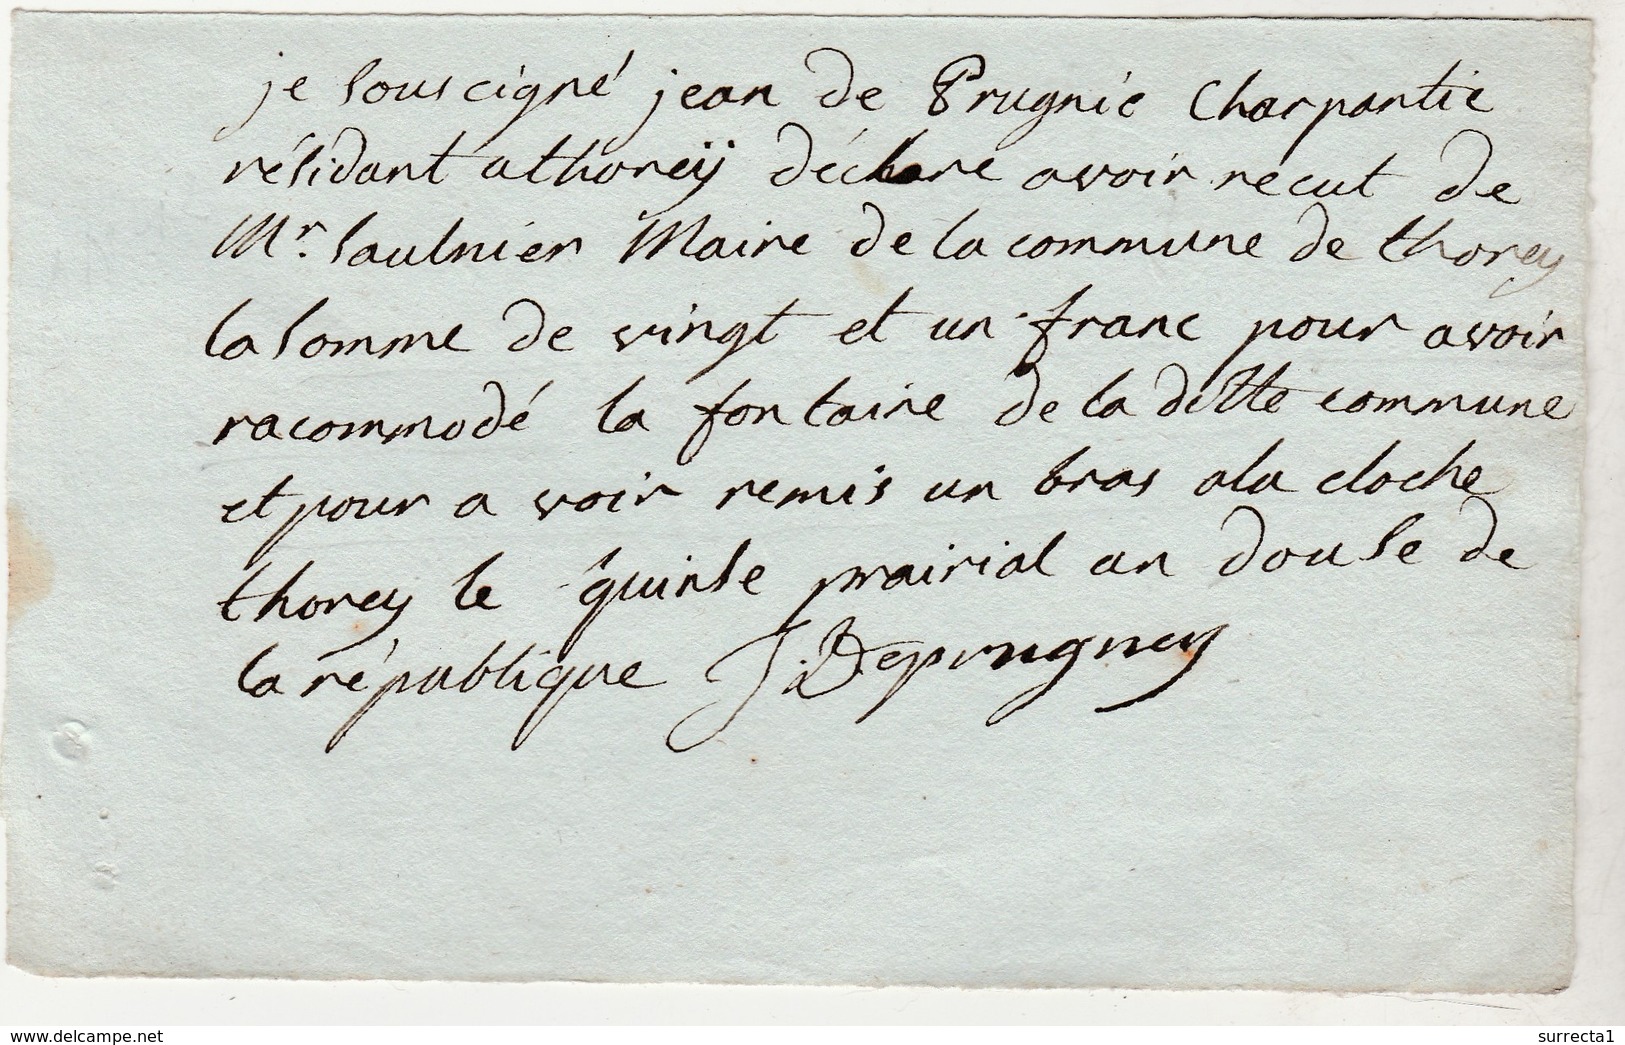 je souscigné jean de Prugnié Charpantié
résidant athoreÿ déclare avoir recut de
Mr. Saulnier Maire de la commune de thorey
la somme de vingt et un franc pour avoir
racommodé la fontaine de la ditte commune
et pour a voir remis un bras ala cloche
thorey le quinse prairial an douse de
la république J. Deprugney
www.delcampe.net
surrecta1